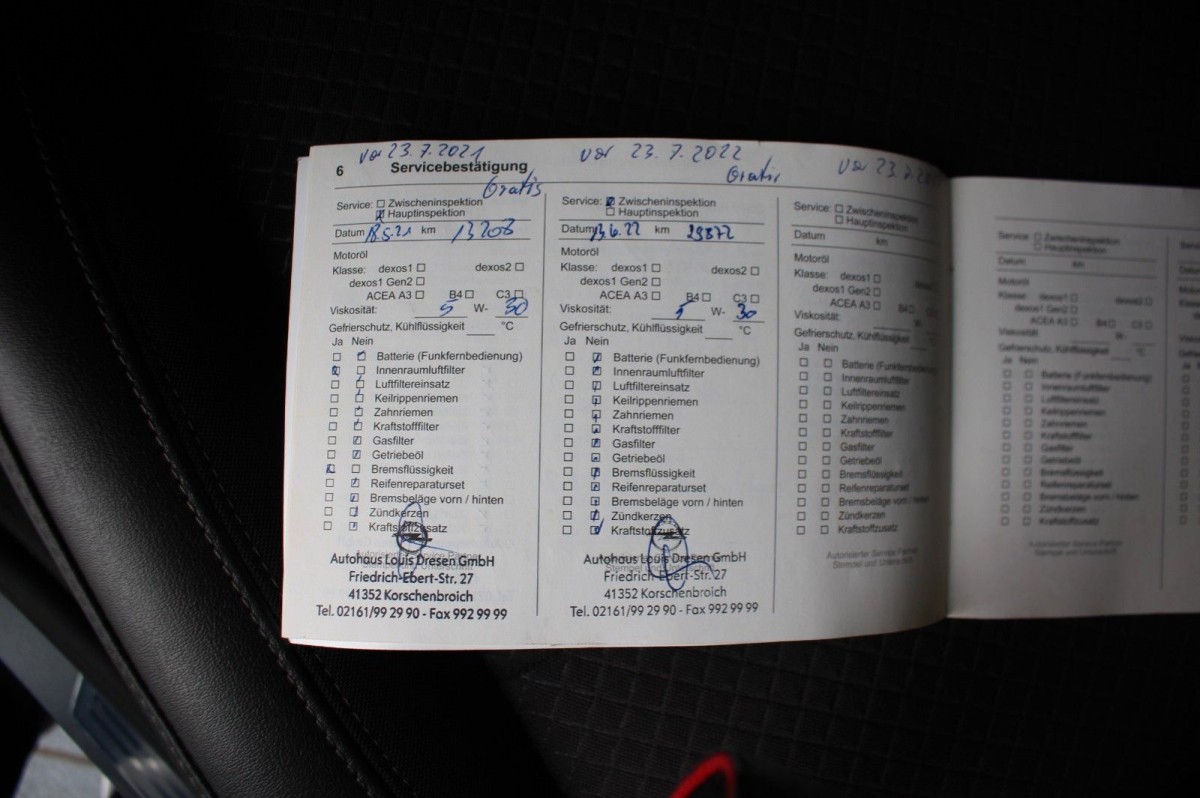 vor 23.7.2021
6 Servicebestätigung
Gratis
Service: Zwischeninspektion
Hauptinspektion
Datum 18.5.21 km 13208
Motoröl
Klasse: dexos1 dexos2
dexos1 Gen2
ACEA A3 B4 C3
Viskosität: 5 W- 30
Gefrierschutz, Kühlflüssigkeit °C
Ja Nein
Batterie (Funkfernbedienung)
Innenraumluftfilter
Luftfiltereinsatz
Keilrippenriemen
Zahnriemen
Kraftstofffilter
Gasfilter
Getriebeöl
Bremsflüssigkeit
Reifenreparaturset
Bremsbeläge vorn / hinten
Zündkerzen
Kraftstoffzusatz
Autohaus Louis Dresen GmbH
Friedrich-Ebert-Str. 27
41352 Korschenbroich
Tel. 02161/99 29 90 - Fax 992 99 99
vor 23.7.2022
Gratis
Service: Zwischeninspektion
Hauptinspektion
Datum 13.6.22 km 29872
Motoröl
Klasse: dexos1 dexos2
dexos1 Gen2
ACEA A3 B4 C3
Viskosität: 5 W- 30
Gefrierschutz, Kühlflüssigkeit °C
Ja Nein
Batterie (Funkfernbedienung)
Innenraumluftfilter
Luftfiltereinsatz
Keilrippenriemen
Zahnriemen
Kraftstofffilter
Gasfilter
Getriebeöl
Bremsflüssigkeit
Reifenreparaturset
Bremsbeläge vorn / hinten
Zündkerzen
Kraftstoffzusatz
Autohaus Louis Dresen GmbH
Stempel und Unterschrift
Friedrich-Ebert-Str. 27
41352 Korschenbroich
Tel. 02161/99 29 90 - Fax 992 99 99
vor 23.7.2
Service: Zwischeninspektion
Hauptinspektion
Datum km
Motoröl
Klasse: dexos1
dexos1 Gen2
ACEA A3 B4
Viskosität: W-
Gefrierschutz, Kühlflüssigkeit
Ja Nein
Batterie (Funkfernbedienung)
Innenraumluftfilter
Luftfiltereinsatz
Keilrippenriemen
Zahnriemen
Kraftstofffilter
Gasfilter
Getriebeöl
Bremsflüssigkeit
Reifenreparaturset
Bremsbeläge vorn / hinten
Zündkerzen
Kraftstoffzusatz
Autorisierter Service Partner
Stempel und Unterschrift
Service: Zwischeninspektion
Hauptinspektion
Datum km
Motoröl
Klasse: dexos1 dexos2
dexos1 Gen2
ACEA A3 B4 C3
Viskosität: W-
Gefrierschutz, Kühlflüssigkeit °C
Ja Nein
Batterie (Funkfernbedienung)
Innenraumluftfilter
Luftfiltereinsatz
Keilrippenriemen
Zahnriemen
Kraftstofffilter
Gasfilter
Getriebeöl
Bremsflüssigkeit
Reifenreparaturset
Bremsbeläge vorn / hinten
Zündkerzen
Kraftstoffzusatz
Autorisierter Service Partner
Stempel und Unterschrift